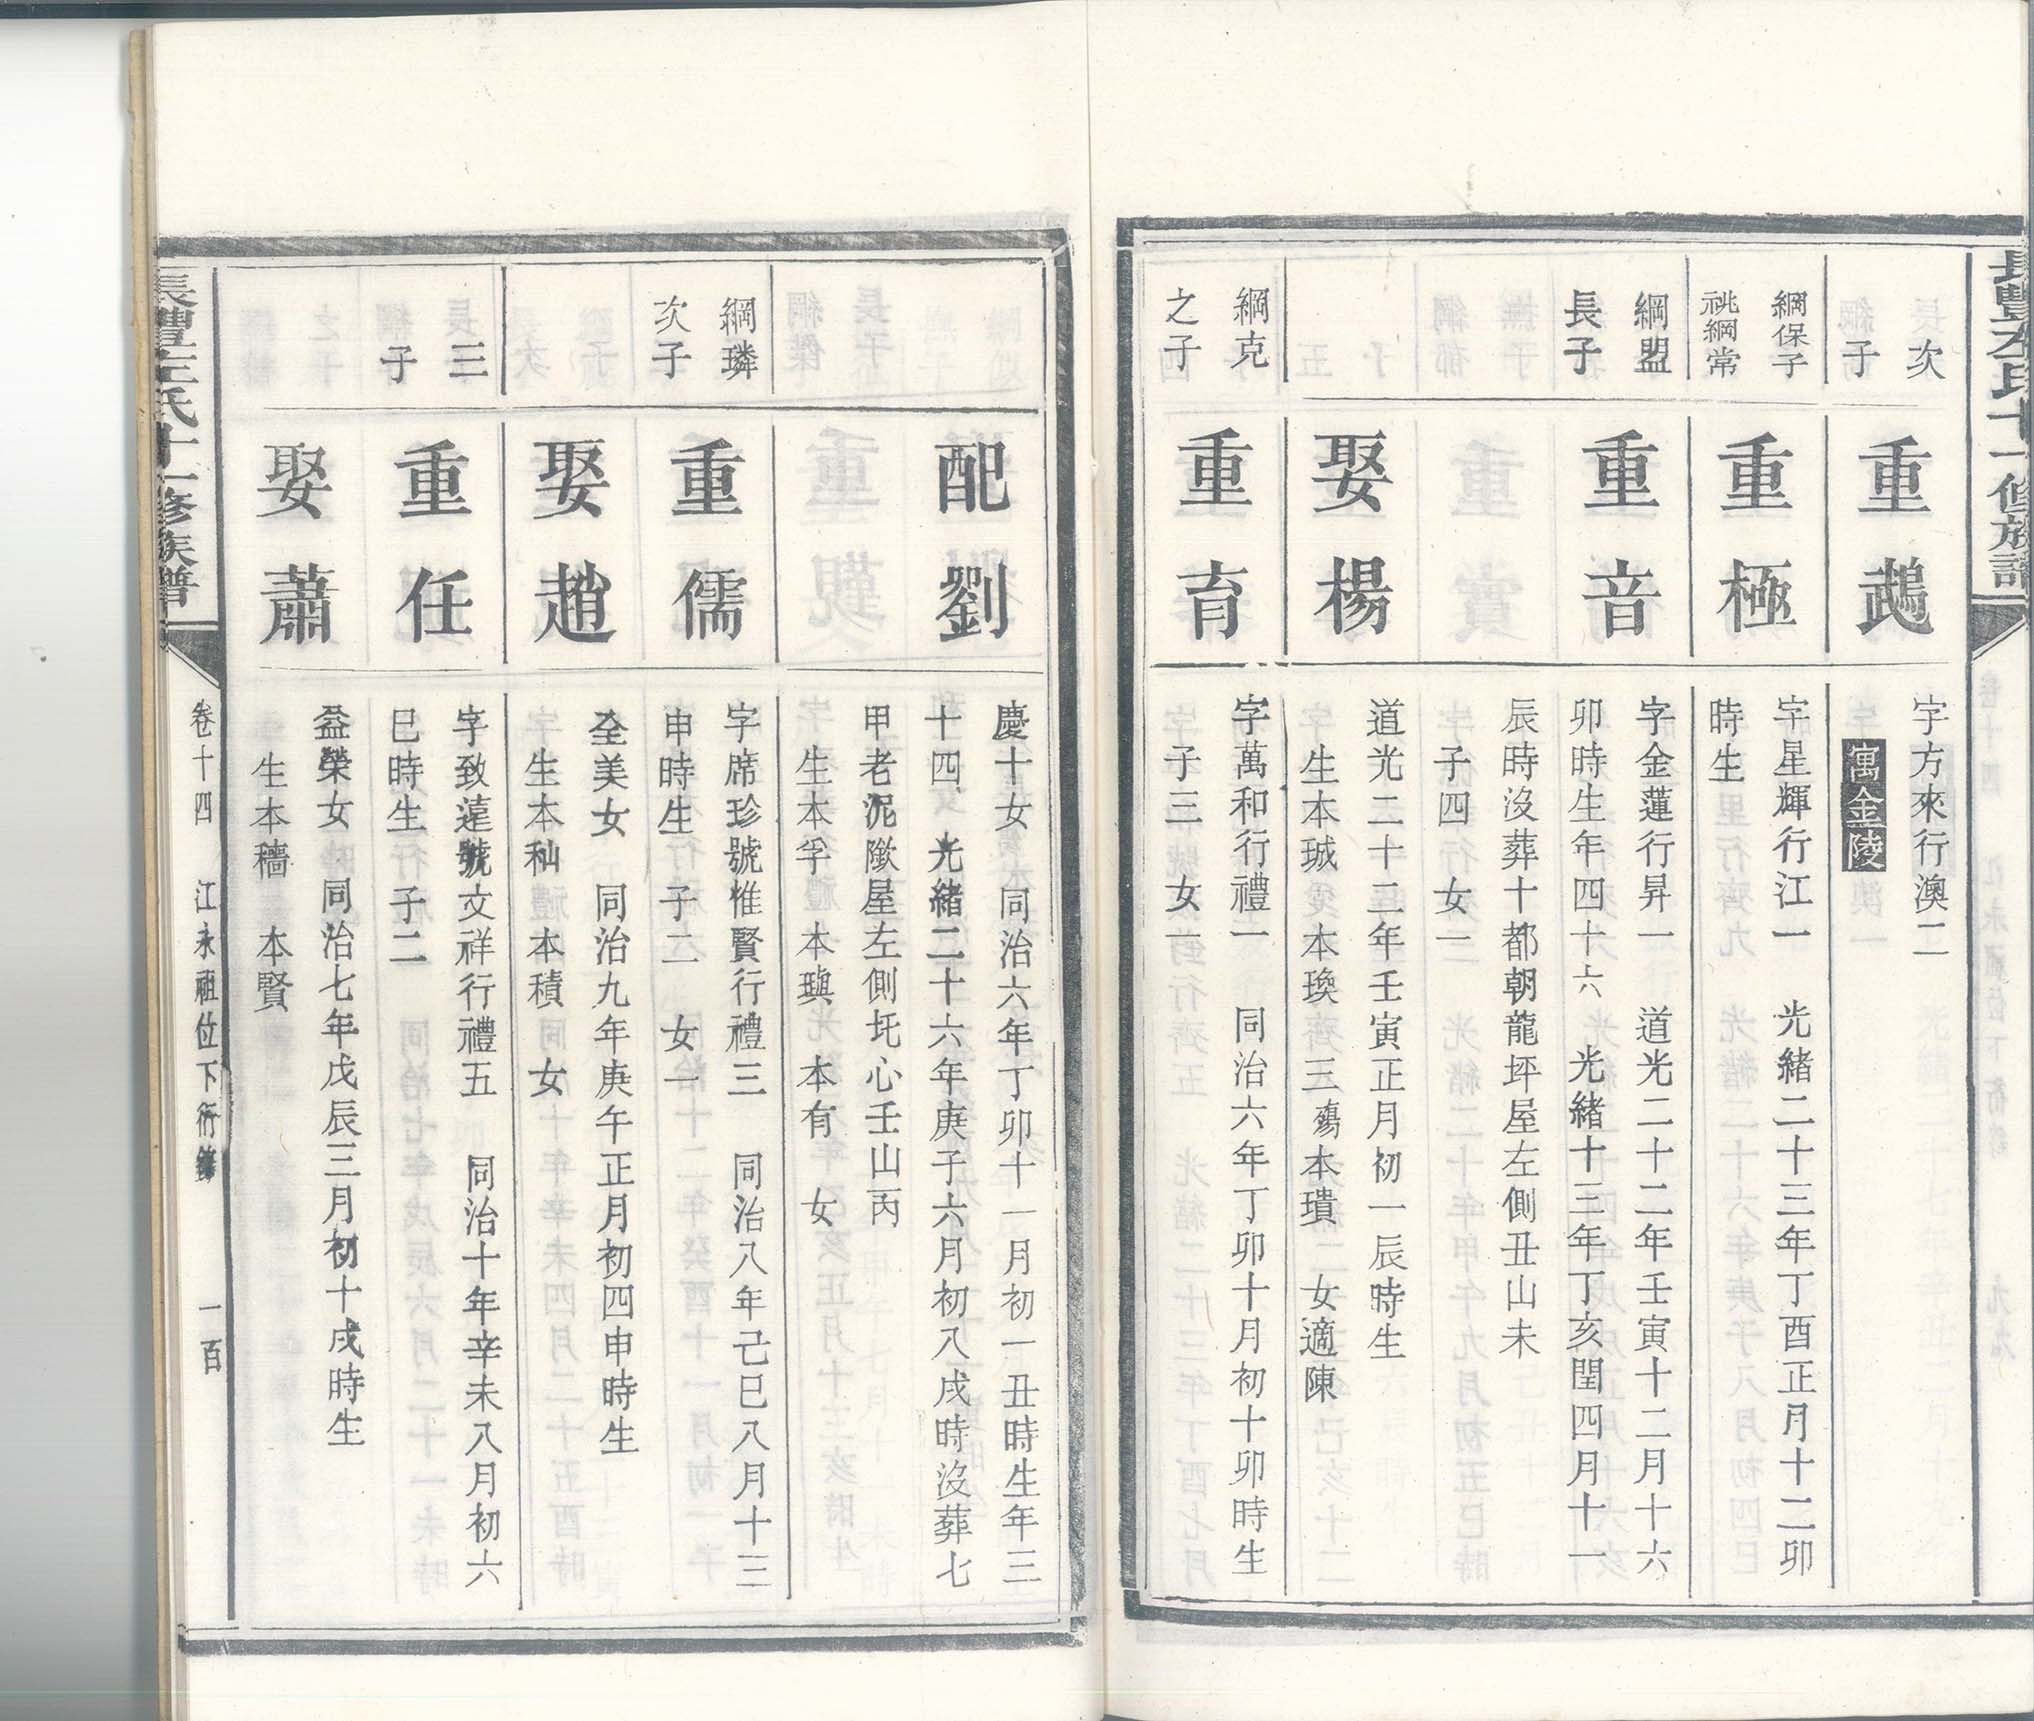 次
子
重
字方來行澳二
寓金陵
綱保子
祧綱常
重極
字星輝行江一　光緒二十三年丁酉正月十二卯
時生
綱盟
長子
重音
字金蓮行昇一　道光二十二年壬寅十二月十六
卯時生年四十六　光緒十三年丁亥閏四月十一
辰時沒葬十都朝龍坪屋左側丑山未
子四　女一
娶楊
道光二十二年壬寅正月初一辰時生
生本珹　本瑍　三殤本瓄　女適陳
綱克
之子
重育
字萬和行禮一　同治六年丁卯十月初十卯時生
子三　女一
配劉
慶十女　同治六年丁卯十一月初一丑時生年三
十四　光緒二十六年庚子六月初八戌時沒葬七
甲老泥墩屋左側圫心壬山丙
生本孚　本璵　本有　女
綱璘
次子
重儒
字席珍號惟賢行禮三　同治八年己巳八月十三
申時生　子二　女一
娶趙
全美女　同治九年庚午正月初四申時生
生本秈　本積　女
三
子
重任
字致遠號文祥行禮五　同治十年辛未八月初六
巳時生　子二
娶蕭
益榮女　同治七年戊辰三月初十戌時生
生本穡　本賢
長豐左氏十一修族譜
卷十四　江永祖位下衍錄　一百